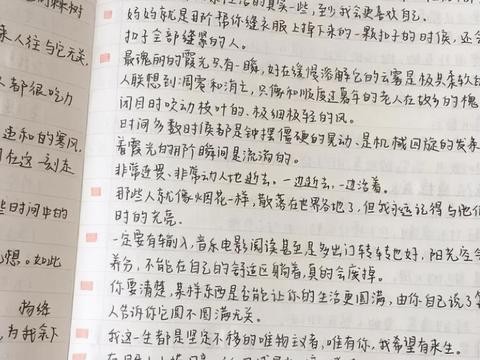 的棘树
来人往与它无关,
人都很吃力
违和的寒风,
在这一刻走
些时间中的
想。如此
物终
,为我余下
的真实一些,到 会更喜欢自己。
妈妈就是那 帮你缝衣服上掉下来的一颗扣子的时候,还会
扣子全部缝紧的人。
最瑰丽的霞光只有一瞬,好在缓慢溶解它的云雾是极其柔软
人联想到凋零和消亡,只像和顺度过暮年的老人在故乡的槐
闭目时吹动枝叶的、极细极轻的风。
时间多数时候都是钟摆僵硬的晃动、是机械回旋的发条
着霞光的那阶瞬间是流淌的。
非常迟畏、非常动人地逝去。一边逝去,一边活着。
那些人就像烟花一样,散落在世界各地了,但我永远记得与他们
时的光亮。
一定要有输入,音乐电影阅读甚至是多出门转转也好,阳光空
养分,不能在自己的舒适区躺着,真的会废掉。
你要清楚,某样东西是否能让你的生活更圆满,由你自己说了算
人告诉你它圆不圆满无关。
我这一生都是坚定不移的唯物主义者,唯有你,我希望有来生。